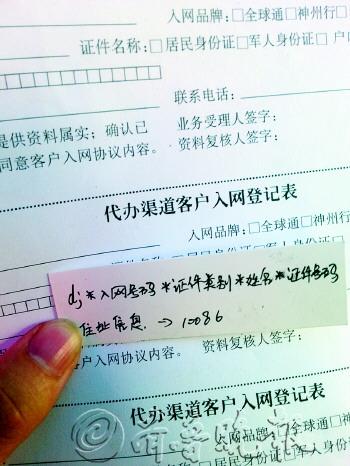 入网品牌：□全球通□神州行□
证件名称：□居民身份证□军人身份证□户口
联系电话：
提供资料属实；确认已
同意客户入网协议内容。
业务受理人签字：
资料复核人签字：
代办渠道客户入网登记表
入网品牌：□全球通□神州行
dj*入网号码*证件类别*姓名*证件号码
住址信息→10086
户入网协议内容。
资料复核人签字：
代办渠道客户入网登记表
入网品牌：□全球通□神
□居民身份证□军人身